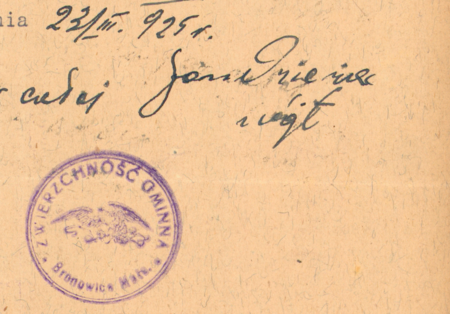 nia 23/III. 925 r.
całej Jan
wójt
ZWIERZCHNOŚĆ GMINNA
Bronowice Małe.